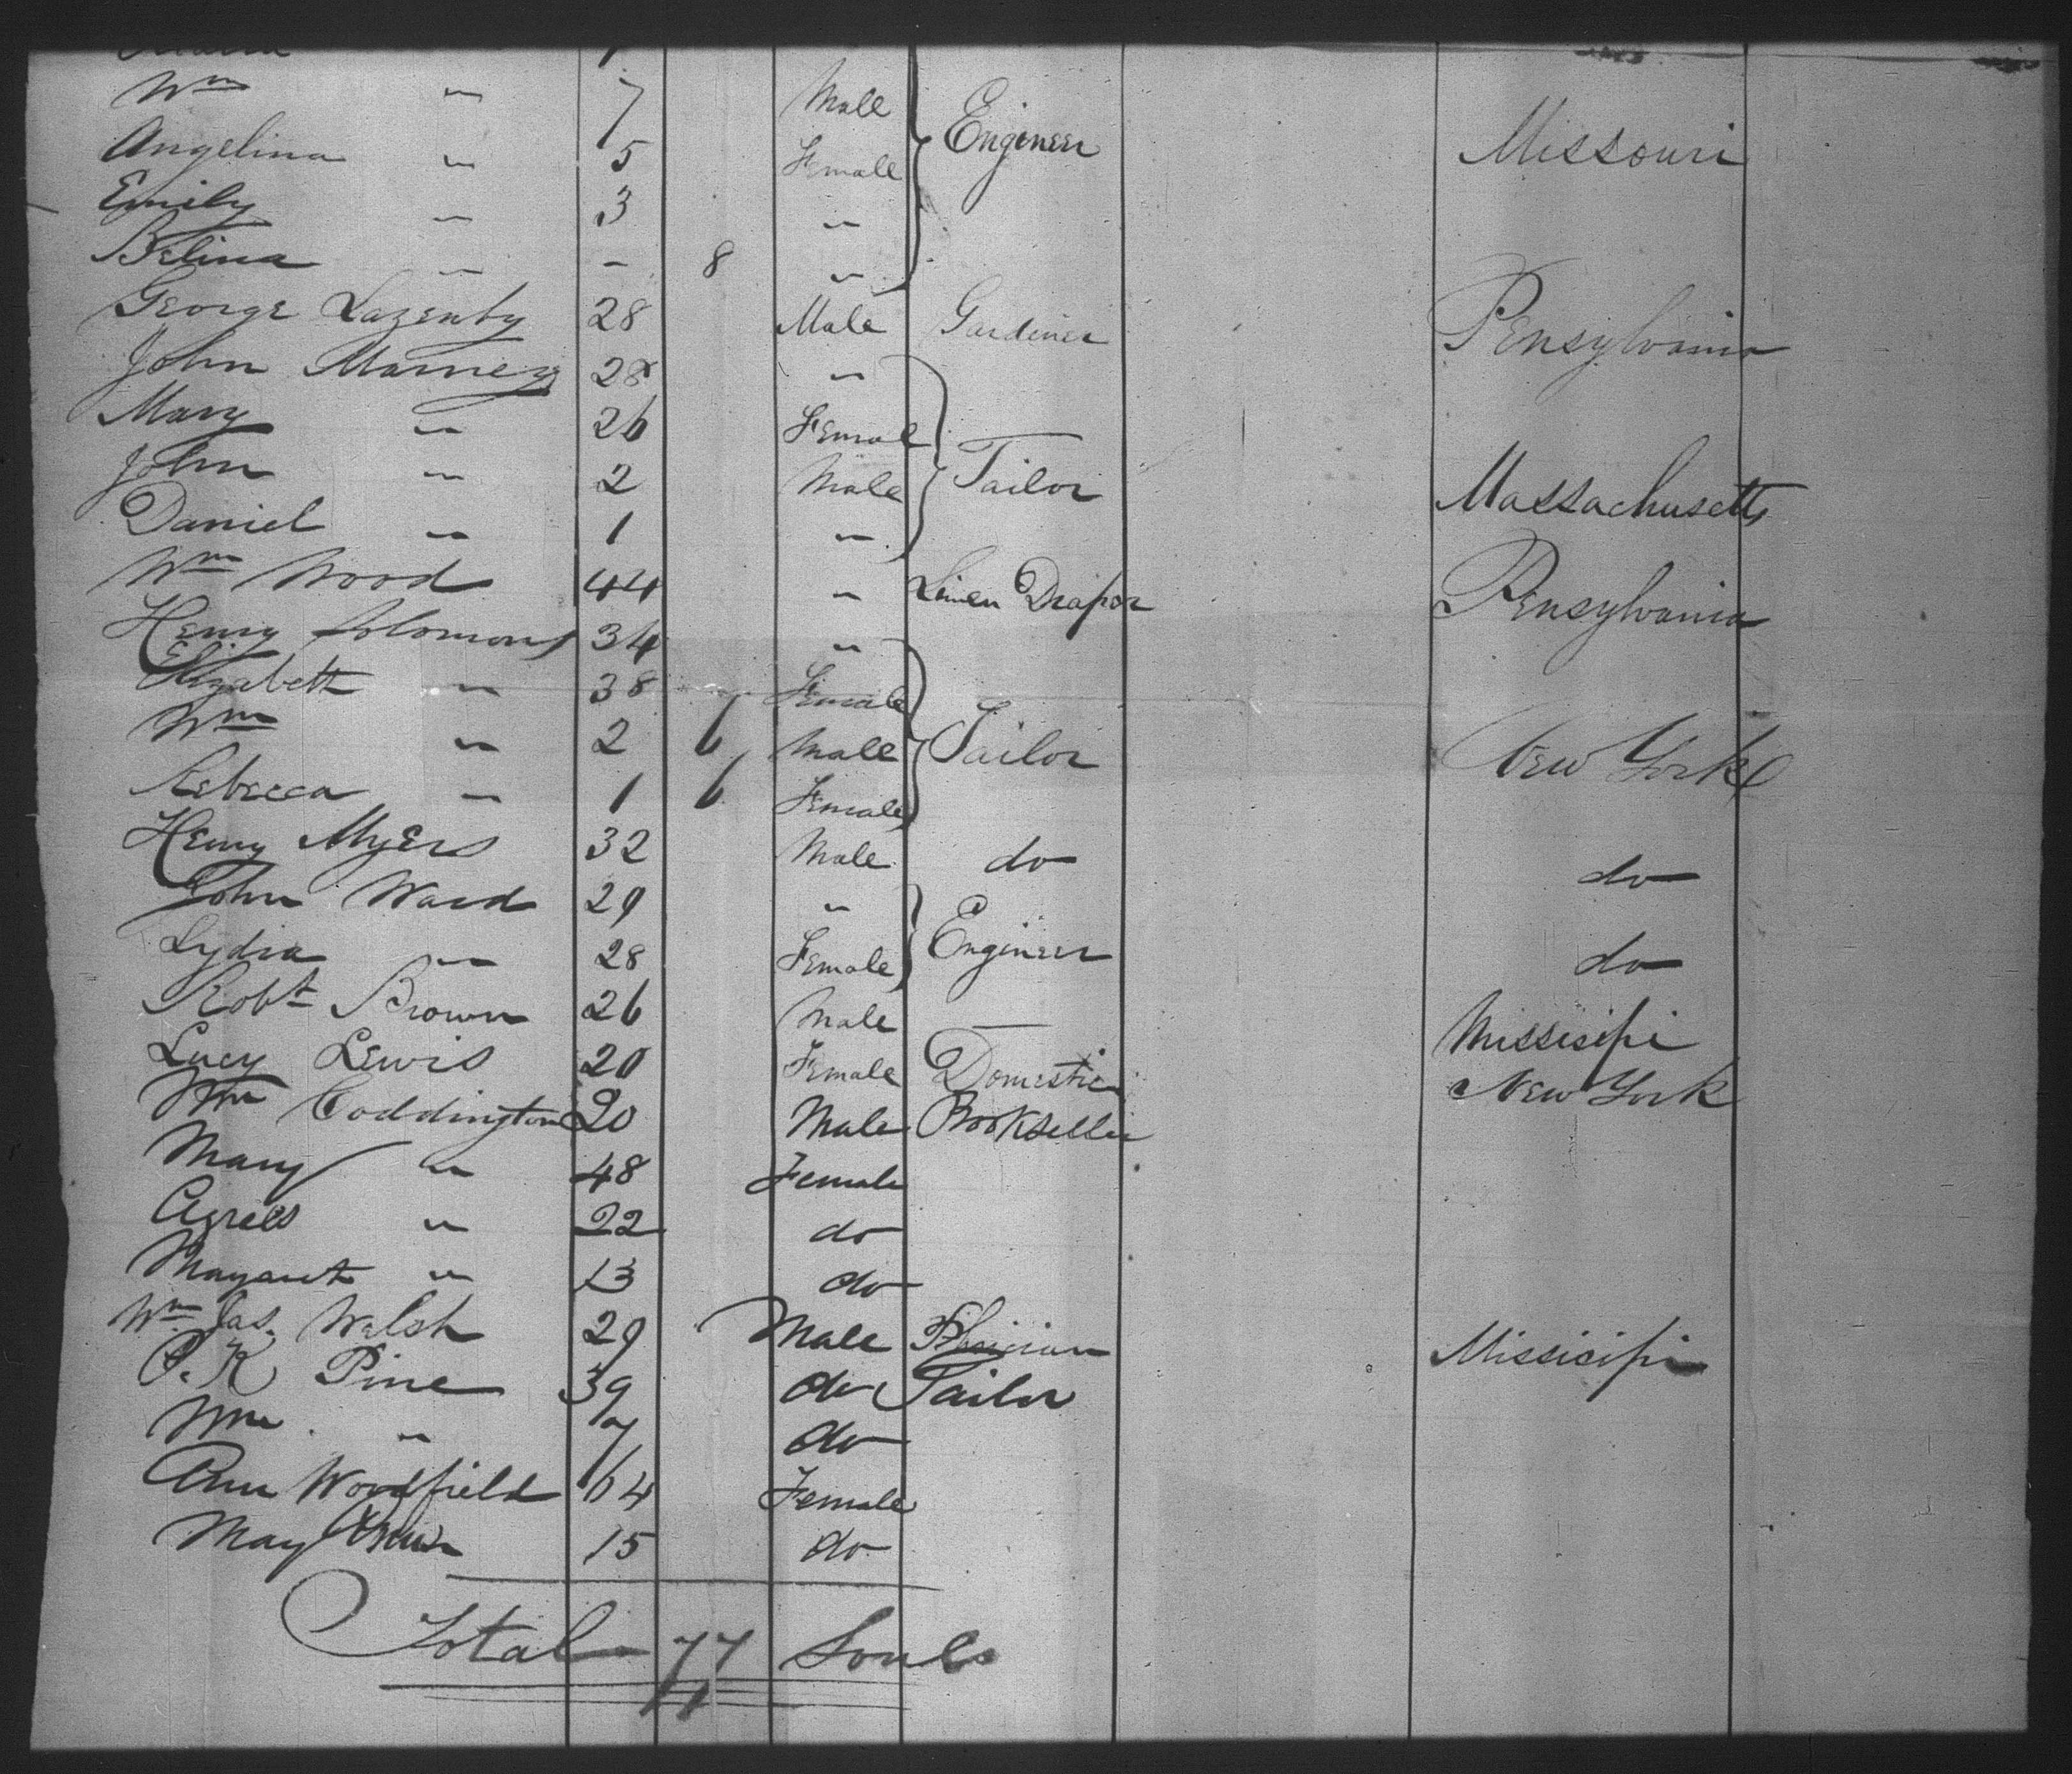 Wm " 7 Male Engineer Missouri
Angelina " 5 Female
Emily " 3 "
Belina " - 8 "
George Lazenby 28 Male Gardiner Pensylvania
John Marney 28 "
Mary " 26 Femal
John " 2 Male Tailor Massachusetts
Daniel " 1 "
Wm Wood 44 " Linen Draper Pensylvania
Henry Solomons 34 "
Elizabeth " 38 Female
Wm " 2 6 Male Tailor New York
Rebecca " 1 6 Female
Henry Myers 32 Male do do
John Ward 29 " Engineer do
Lydia " 28 Female
Robt Brown 26 Male — Missisipi
Lucy Lewis 20 Female Domestic New York
Wm Coddington 20 Male Bookseller
Mary " 48 Female
Agnes " 22 do
Magaret " 13 do
Wm Jas. Welsh 29 Male Missisipi
P. K Pine 39 do Tailor
Wm " 7 do
Ann Woodfield 64 Female
May 15 do
Total 77 Souls